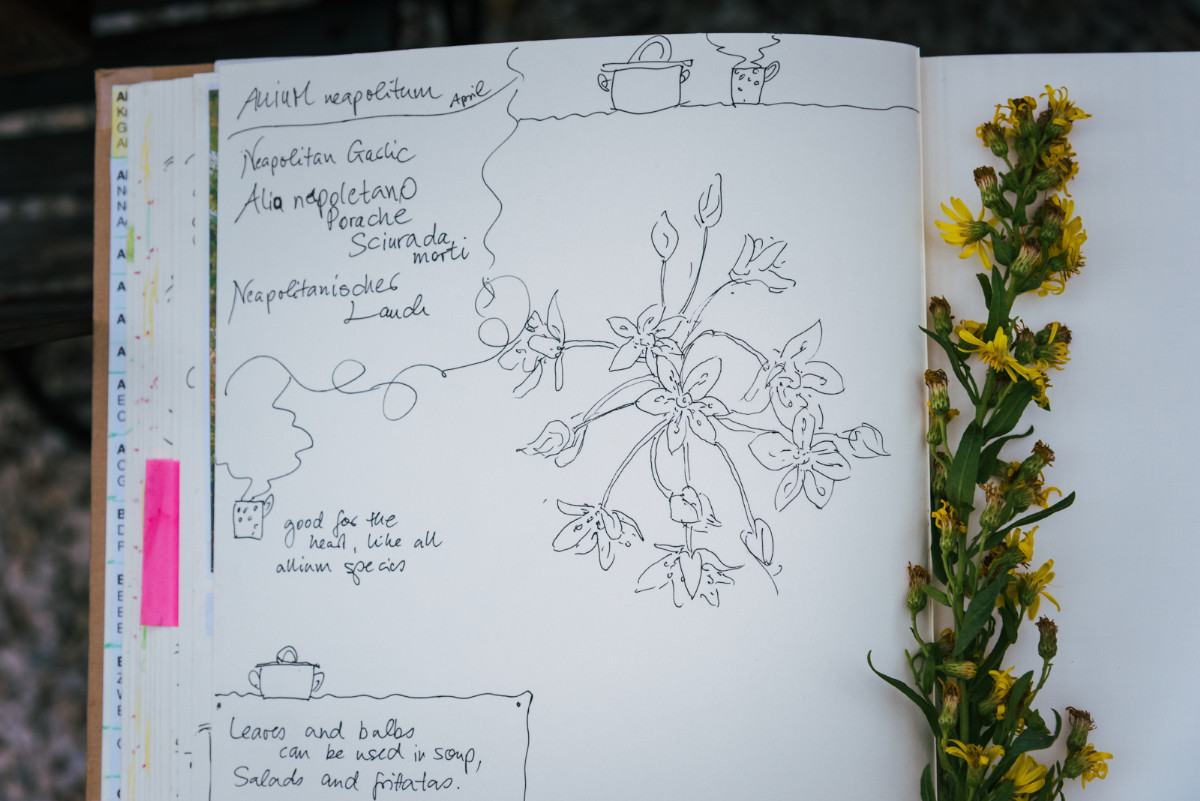 Allium neapolitum April
Neapolitan Garlic
Alia napoletano
Porache
Sciurada
morti
Neapolitanischer
Lauch
good for the
heart, like all
allium species
Leaves and bulbs
can be used in soup,
Salads and fritatas.